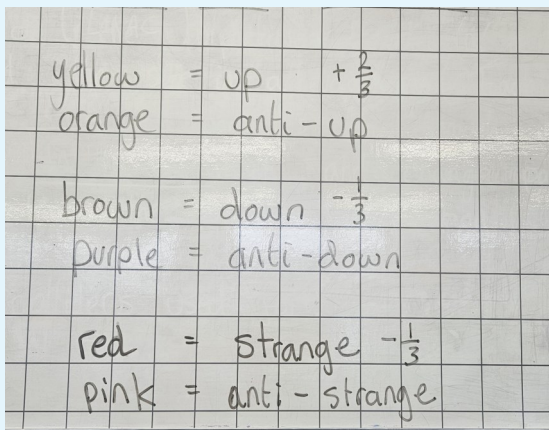 yellow = up + 2/3
orange = anti-up
brown = down - 1/3
purple = anti-down
red = strange - 1/3
pink = anti-strange